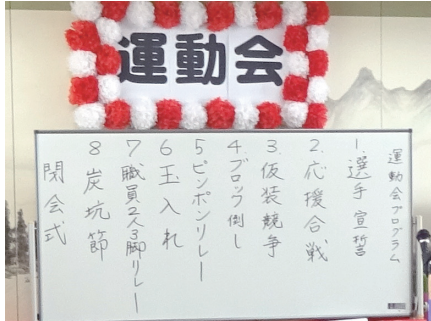 運動会
運動会プログラム
1.選手宣誓
2.応援合戦
3.仮装競争
4.ブロック倒し
5ピンポンリレー
6玉入れ
7職員2人3脚リレー
8炭坑節
閉会式